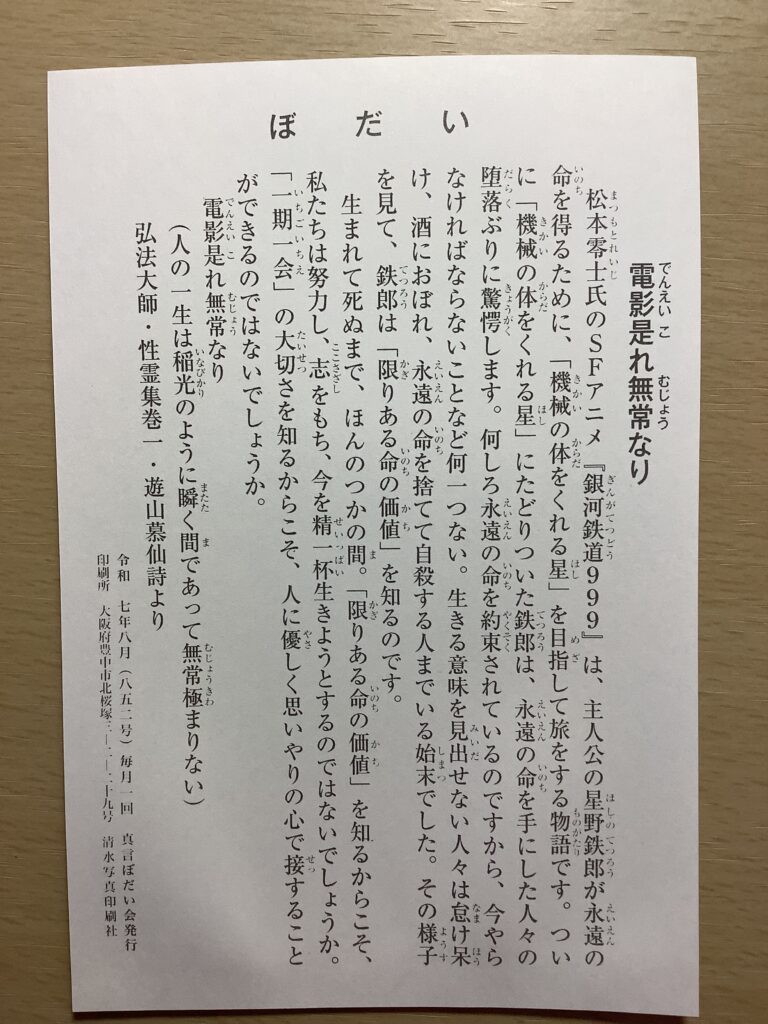 ぼだい
電影是れ無常なり
松本零士氏のSFアニメ『銀河鉄道999』は、主人公の星野鉄郎が永遠の
命を得るために、「機械の体をくれる星」を目指して旅をする物語です。つい
に「機械の体をくれる星」にたどりついた鉄郎は、永遠の命を手にした人々の
堕落ぶりに驚愕します。何しろ永遠の命を約束されているのですから、今やら
なければならないことなど何一つない。生きる意味を見出せない人々は怠け呆
け、酒におぼれ、永遠の命を捨てて自殺する人までいる始末でした。その様子
を見て、鉄郎は「限りある命の価値」を知るのです。
生まれて死ぬまで、ほんのつかの間。「限りある命の価値」を知るからこそ、
私たちは努力し、志をもち、今を精一杯生きようとするのではないでしょうか。
「一期一会」の大切さを知るからこそ、人に優しく思いやりの心で接すること
ができるのではないでしょうか。
電影是れ無常なり
（人の一生は稲光のように瞬く間であって無常極まりない）
弘法大師・性霊集巻一・遊山慕仙詩より
令和 七年八月（八五二号）毎月一回 真言ぼだい会発行
印刷所 大阪府豊中市北桜塚三―二―二十九号 清水写真印刷社